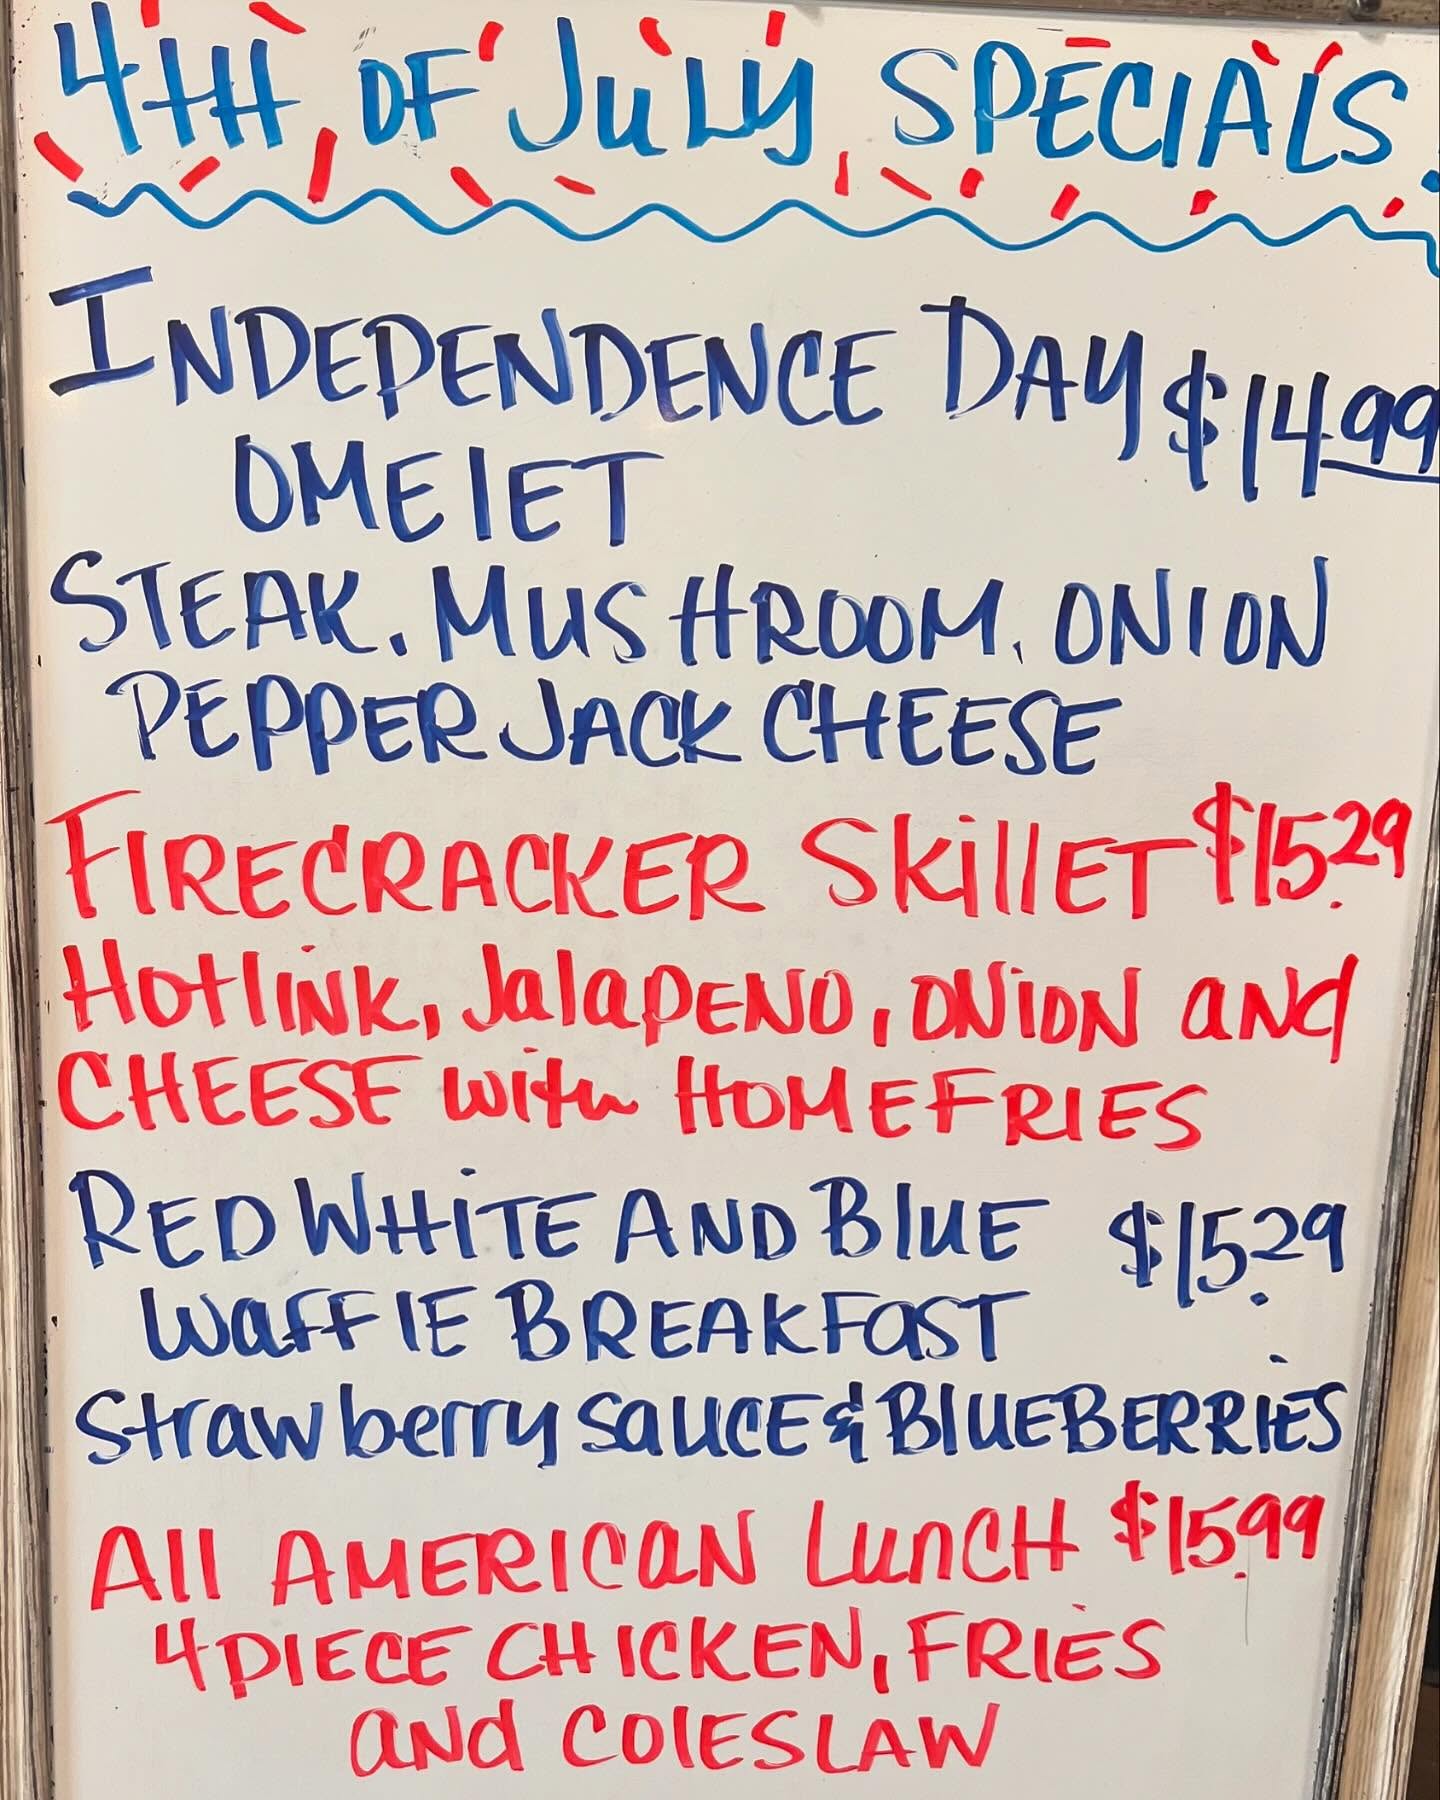 4TH OF JULY SPECIALS
INDEPENDENCE DAY $14.99
OMElET
STEAK. MUSHROOM, ONION
PEPPER JACK CHEESE
FIRECRACKER SkillET $15.29
HotliNK, JalapENO, ONiON aNd
CHEESE with HOMEFRIES
RED WHiTE AND BluE $15.29
WaFFlE BREAKFaST
Strawberry SauCE & BluEBERRIES
All AMERICaN LunCH $15.99
4 PIECE CHICKEN, FRIES
aNd COlESLAW